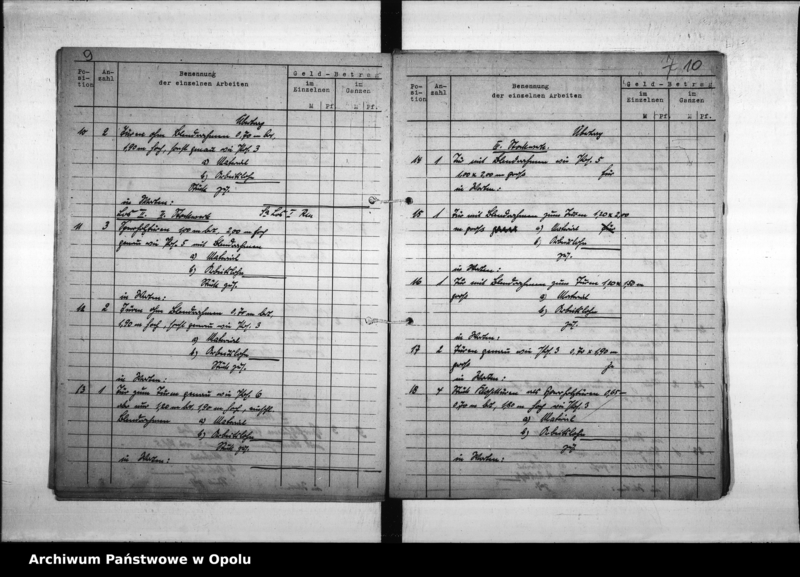 9
Po-
si-
tion
An-
zahl
Benennung
der einzelnen Arbeiten
Geld-Betrag
im
Einzelnen
im
Ganzen
M Pf. M Pf.
Übertrag
10 2 Türen ohne Blendrahmen 0,70 m br.
1,90 m hoch, sonst genau wie Pos. 3
a) Material
b) Arbeitslohn
Stück zus.
in Worten:
Los II. I. Stockwerk Sa Los I Rm
11 3 Sperrholztüren 1,00 m br. 2,00 m hoch
genau wie Pos. 5 mit Blendrahmen
a) Material
b) Arbeitslohn
Stück zus.
in Worten:
12 2 Türen ohne Blendrahmen 0,70 m br.
1,90 m hoch, sonst genau wie Pos. 3
a) Material
b) Arbeitslohn
Stück zus.
in Worten:
13 1 Tür zum Turm genau wie Pos. 6
aber nur 1,20 m br. 1,90 m hoch, einschl.
Blendrahmen a) Material
b) Arbeitslohn
Stück zus.
in Worten:
7 10
Po-
si-
tion
An-
zahl
Benennung
der einzelnen Arbeiten
Geld-Betrag
im
Einzelnen
im
Ganzen
M Pf. M Pf.
Übertrag
II. Stockwerk.
14 1 Tür mit Blendrahmen wie Pos. 5
1,00 x 2,00 m gross für
in Worten:
15 1 Tür mit Blendrahmen zum Turm 1,20 x 2,00
m gross a) Material
b) Arbeitslohn
zus.
in Worten:
16 1 Tür mit Blendrahmen zum Turm
gross a) Material
b) Arbeitslohn
zus.
in Worten:
17 2 Türen genau wie Pos. 3 0,70 x 1,90 m
gross je
in Worten:
18 4 Stück Klosettüren als Sperrholztüren 0,65-
0,70 m br. 1,80 m hoch wie Pos. 3
a) Material
b) Arbeitslohn
zus.
in Worten:
Archiwum Państwowe w Opolu